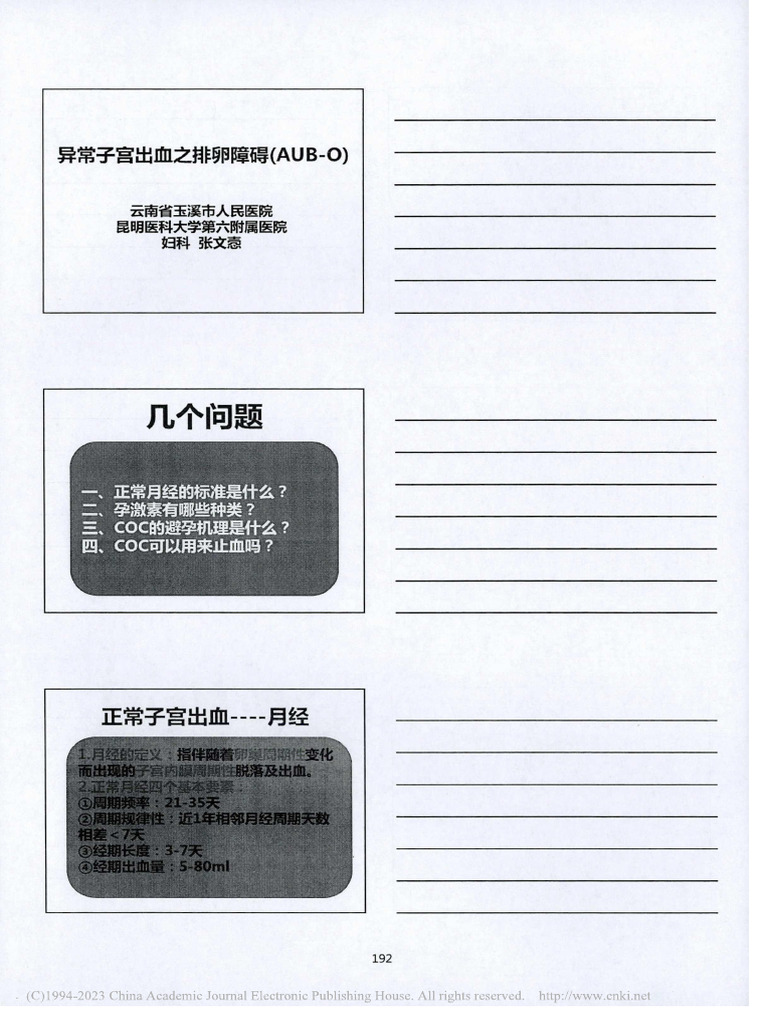 异常子宫出血之排卵障碍(AUB-O)
云南省玉溪市人民医院
昆明医科大学第六附属医院
妇科 张文悫
几个问题
一、正常月经的标准是什么？
二、孕激素有哪些种类？
三、COC的避孕机理是什么？
四、COC可以用来止血吗？
正常子宫出血----月经
1.月经的定义：指伴随着卵巢周期性变化
而出现的子宫内膜周期性脱落及出血。
2.正常月经四个基本要素：
①周期频率：21-35天
②周期规律性：近1年相邻月经周期天数
相差＜7天
③经期长度：3-7天
④经期出血量：5-80ml
192
(C)1994-2023 China Academic Journal Electronic Publishing House. All rights reserved. http://www.cnki.net